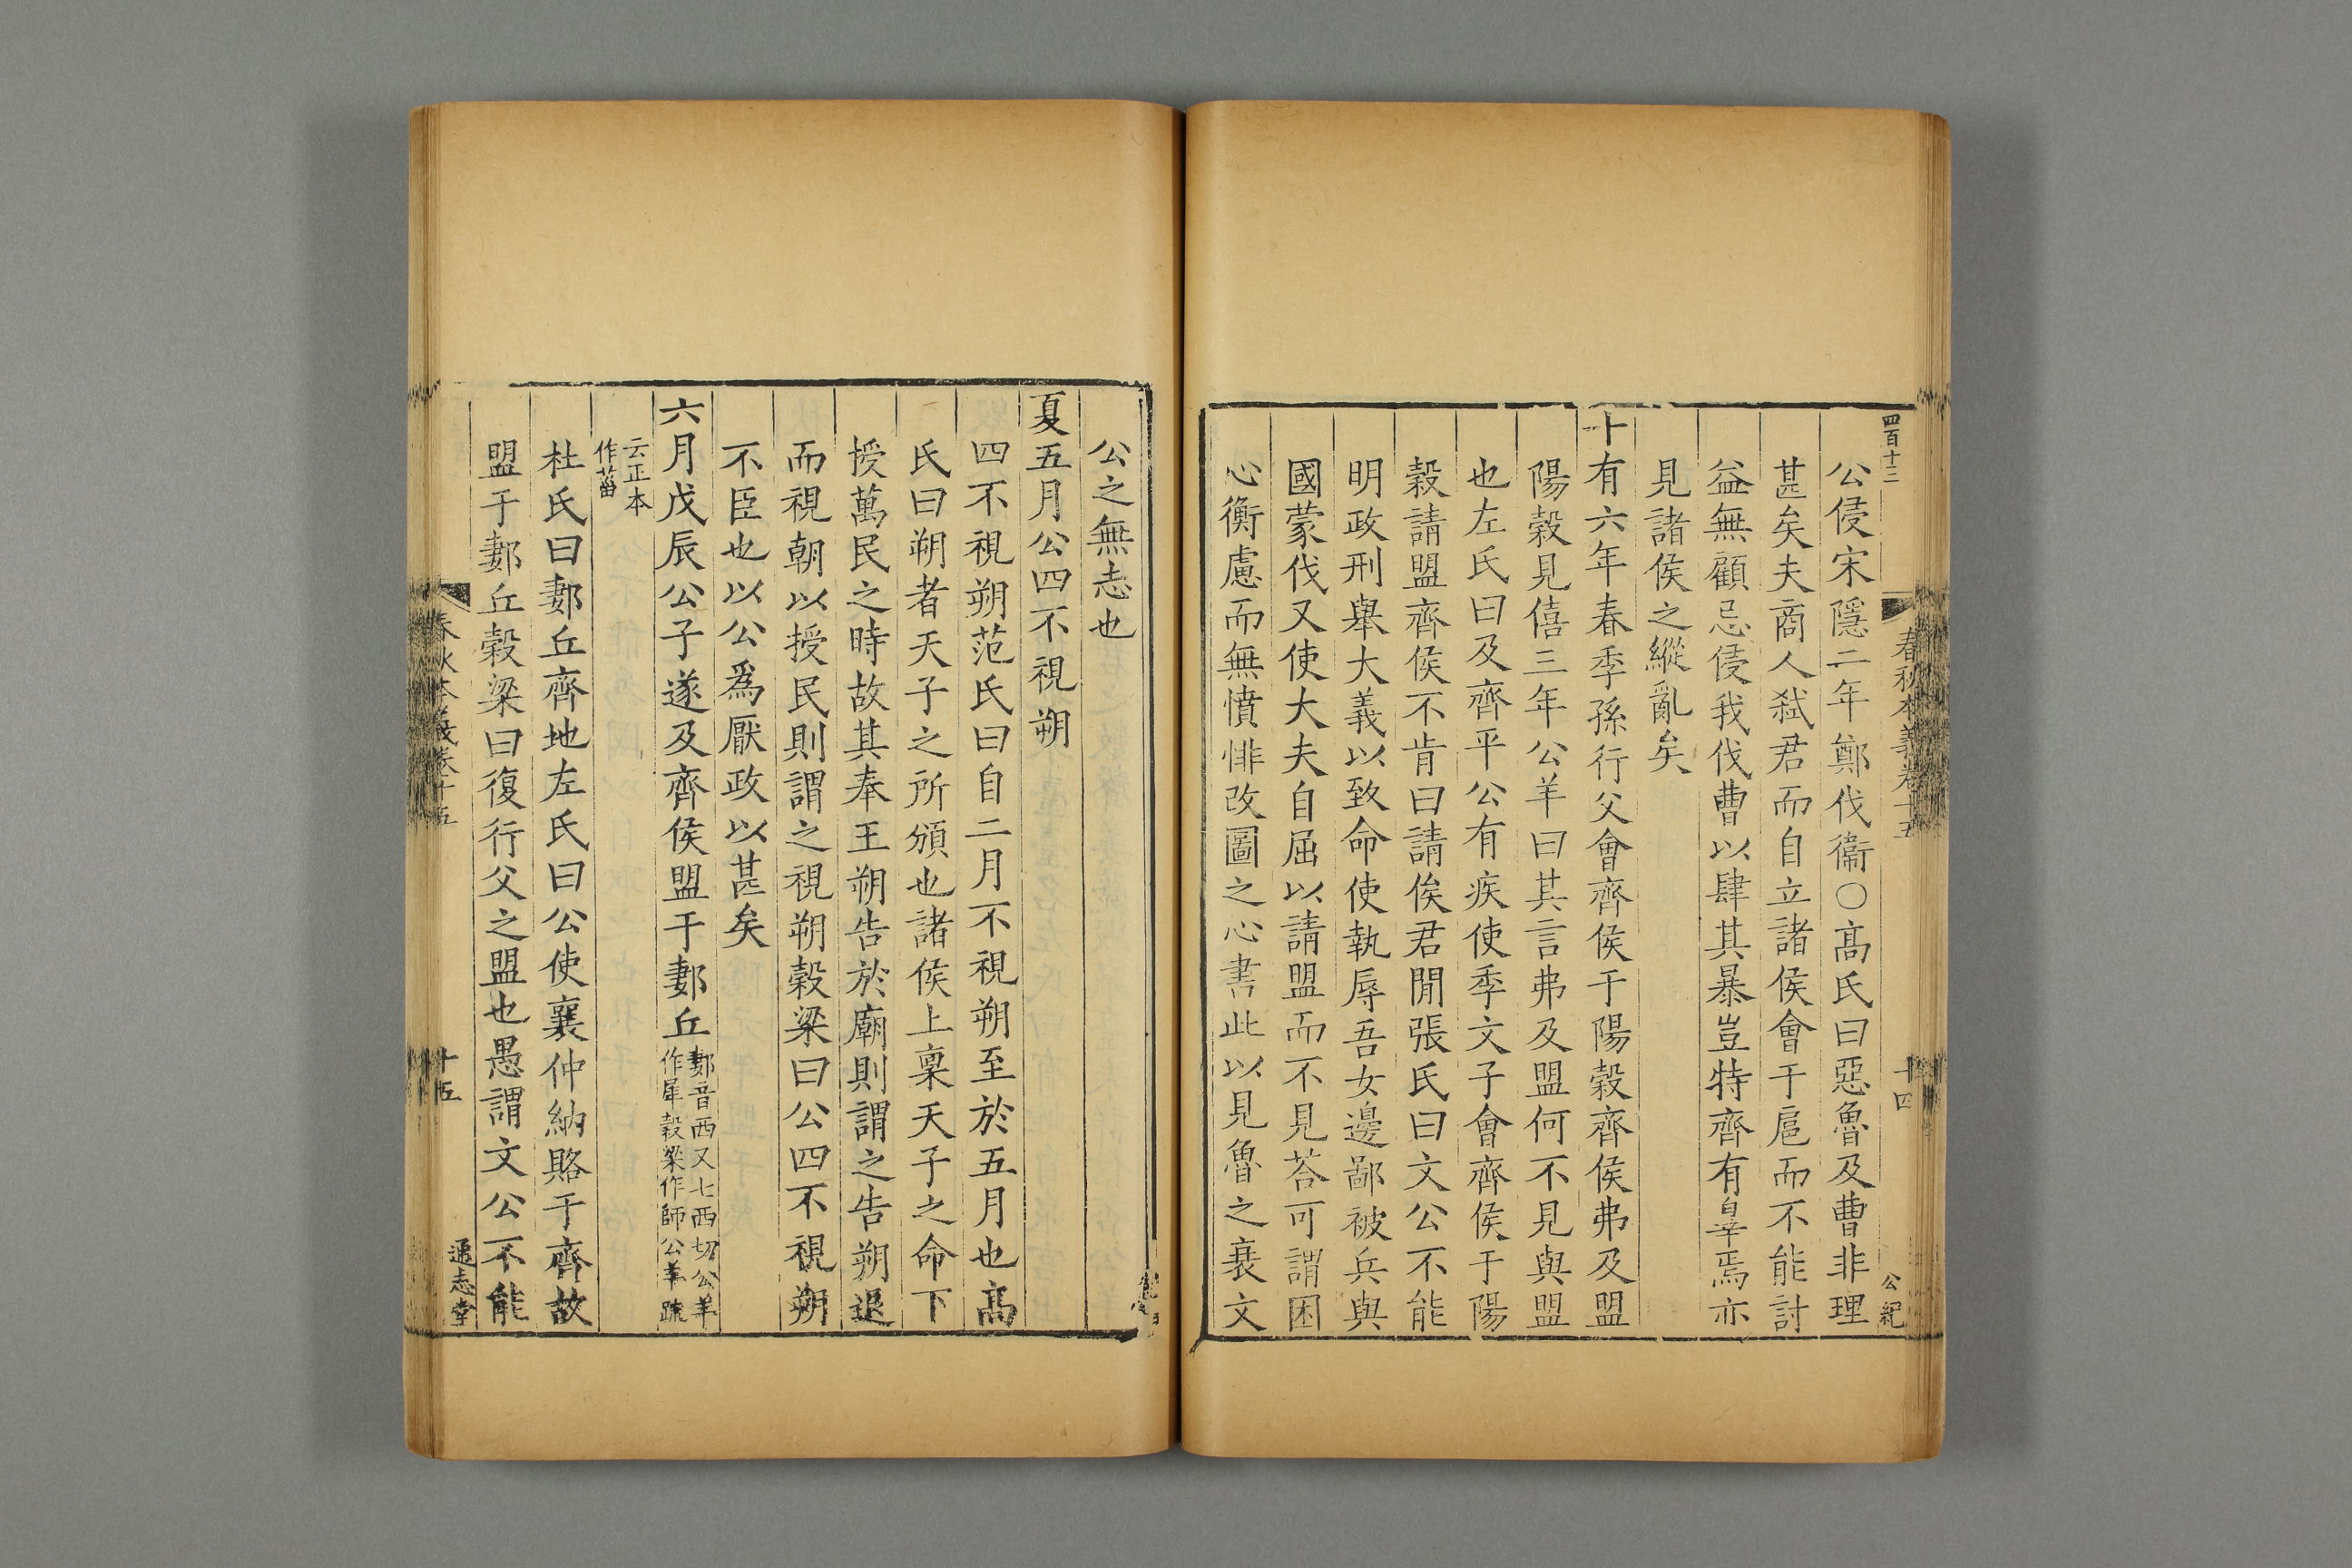 四百十三
春秋本義卷十五
十四
公紀
公侵宋隱二年鄭伐衞○高氏曰惡魯及曹非理
甚矣夫商人弑君而自立諸侯會于扈而不能討
益無顧忌侵我伐曹以肆其暴豈特齊有辠焉亦
見諸侯之縱亂矣
十有六年春季孫行父會齊侯于陽穀齊侯弗及盟
陽穀見僖三年公羊曰其言弗及盟何不見與盟
也左氏曰及齊平公有疾使季文子會齊侯于陽
穀請盟齊侯不肯曰請俟君閒張氏曰文公不能
明政刑舉大義以致命使執辱吾女邊鄙被兵與
國蒙伐又使大夫自屈以請盟而不見荅可謂困
心衡慮而無憤悱改圖之心書此以見魯之衰文
公之無志也
夏五月公四不視朔
四不視朔范氏曰自二月不視朔至於五月也高
氏曰朔者天子之所頒也諸侯上稟天子之命下
授萬民之時故其奉王朔告於廟則謂之告朔退
而視朝以授民則謂之視朔穀梁曰公四不視朔
不臣也以公爲厭政以甚矣
六月戊辰公子遂及齊侯盟于郪丘郪音西又七西切公羊
作犀穀梁作師公羊疏
云正本
作菑
杜氏曰郪丘齊地左氏曰公使襄仲納賂于齊故
盟于郪丘穀梁曰復行父之盟也愚謂文公不能
春秋本義卷十五
十五
通志堂